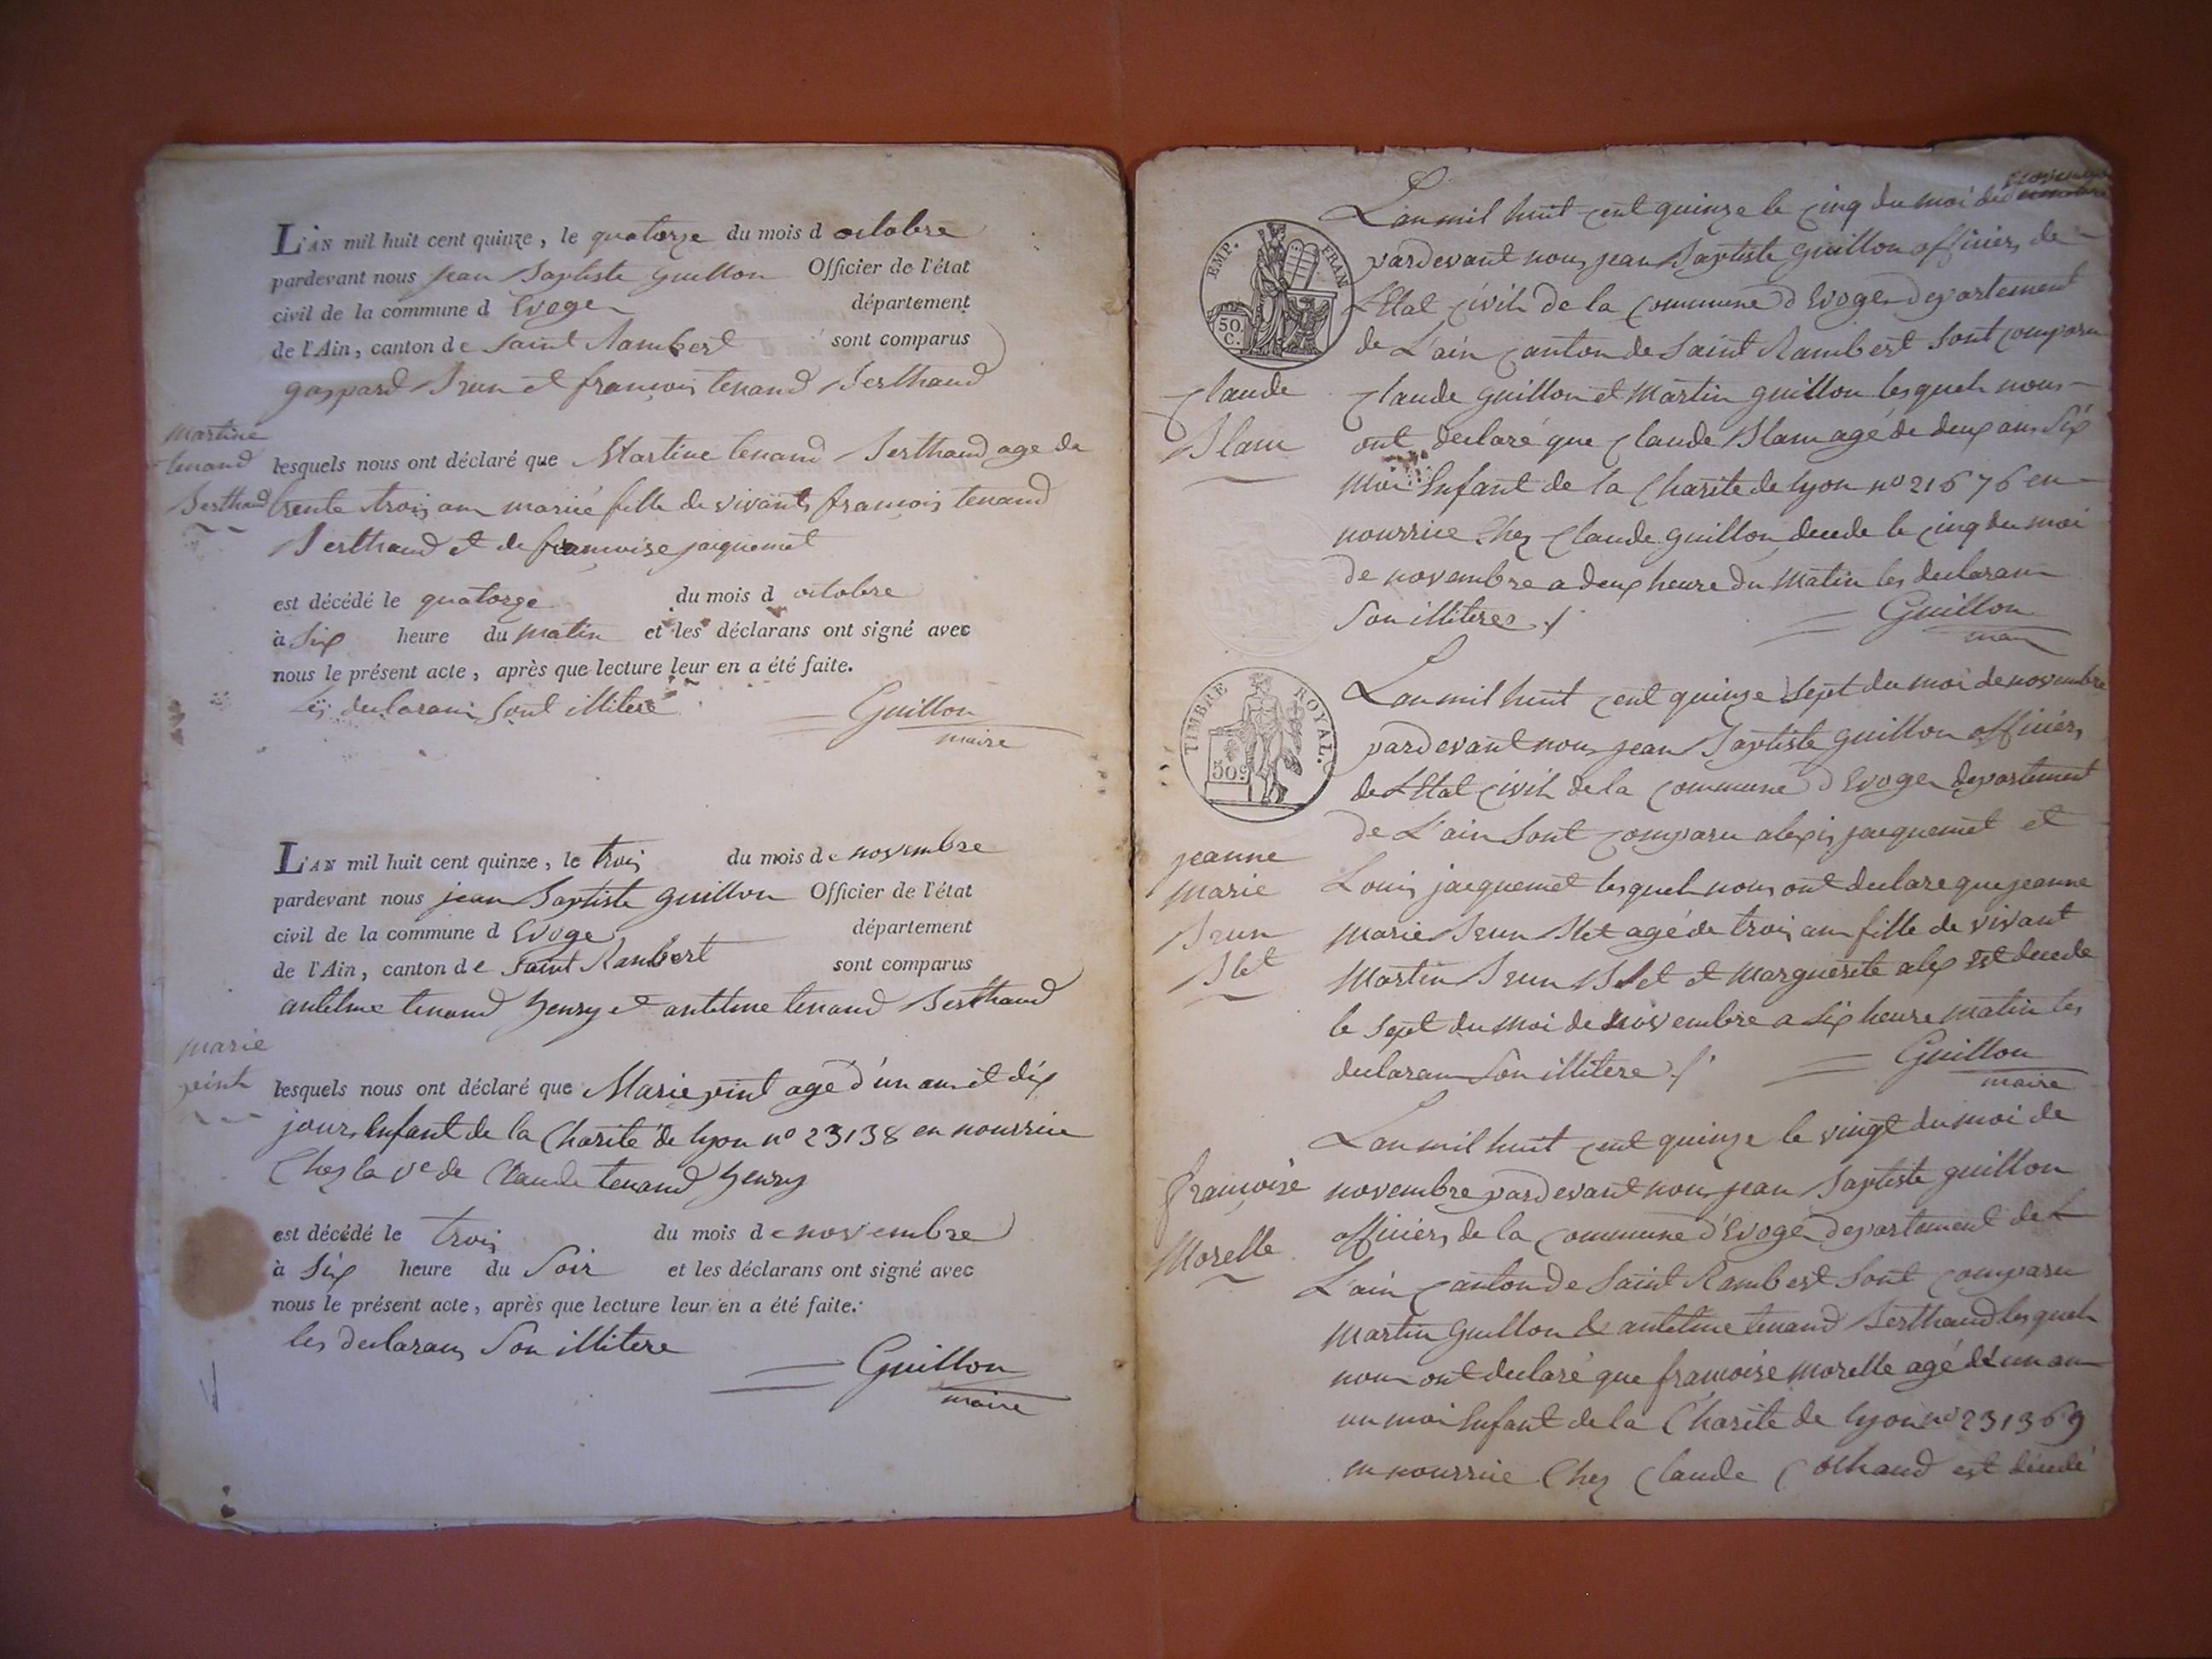 L'AN mil huit cent quinze, le quatorze du mois d octobre
pardevant nous jean Baptiste guillon Officier de l'état
civil de la commune d Evoge département
de l'Ain, canton de Saint Rambert sont comparus
gaspard Brun et françois tenand Berthaud
martine
tenand
Berthaud
lesquels nous ont déclaré que Martine tenand Berthaud age de
trente trois an mariée fille de vivants françois tenand
Berthaud et de francoise jaquemet
est décédé le quatorze du mois d octobre
à Six heure du matin et les déclarans ont signé avec
nous le présent acte, après que lecture leur en a été faite.
Les declarans sont illitere
Guillon
maire
L'AN mil huit cent quinze, le trois du mois de novembre
pardevant nous jean Baptiste guillon Officier de l'état
civil de la commune d Evoge département
de l'Ain, canton de Saint Rambert sont comparus
antelme tenand henry et antelme tenand Berthaud
marie
lesquels nous ont déclaré que Marie age d'un an et dix
jours Enfant de la Charite de lyon no 23138 en nourrice
Chez la ve de Claude tenand henry
est décédé le trois du mois de novembre
à Six heure du Soir et les déclarans ont signé avec
nous le présent acte, après que lecture leur en a été faite.
les declarans Son illitere
Guillon
maire
EMP. FRAN
50.
C.
novembre
L'an mil huit cent quinze le cinq du moi de
pardevant nous jean Baptiste guillon officier de
L'Etat civil de la commune d Evoge departement
de L'ain canton de Saint Rambert Sont comparu
Claude
Blanc
claude guillon et Martin guillon lesquels nous
ont declaré que claude Blanc agé de deux ans Six
moi Enfant de la Charite de lyon no 21676 en
nourrice Chez Claude guillon decede le cinq du moi
de novembre a deux heure du Matin les declarans
Son illiteres
Guillon
maire
TIMBRE ROYAL.
50c
L'an mil huit cent quinze Sept du moi de novembre
pardevant nous jean Baptiste guillon officier
de L'Etat civil de la commune d Evoge departement
de L'ain Sont comparu alexis jacquemet et
jeanne
marie
Brun
Blet
Louis jacquemet lesquels nous ont declare que jeanne
Marie Brun Blet agé de trois an fille de vivant
Martin Brun Blet et Marguerite alex est decede
le Sept du moi de novembre a Six heure matin les
declarans Son illitere
Guillon
maire
L'an mil huit cent quinze le vingt du moi de
françoise
Morelle
novembre pardevant nous jean Baptiste guillon
officier de la commune d'Evoge departement de L
L'ain canton de Saint Rambert Sont comparu
Martin Guillon & antelme tenand Berthaud lesquels
nous ont declaré que francoise Morelle agé de un an
un moi Enfant de la Charite de lyon no 231369
en nourrice Chez Claude est decedé